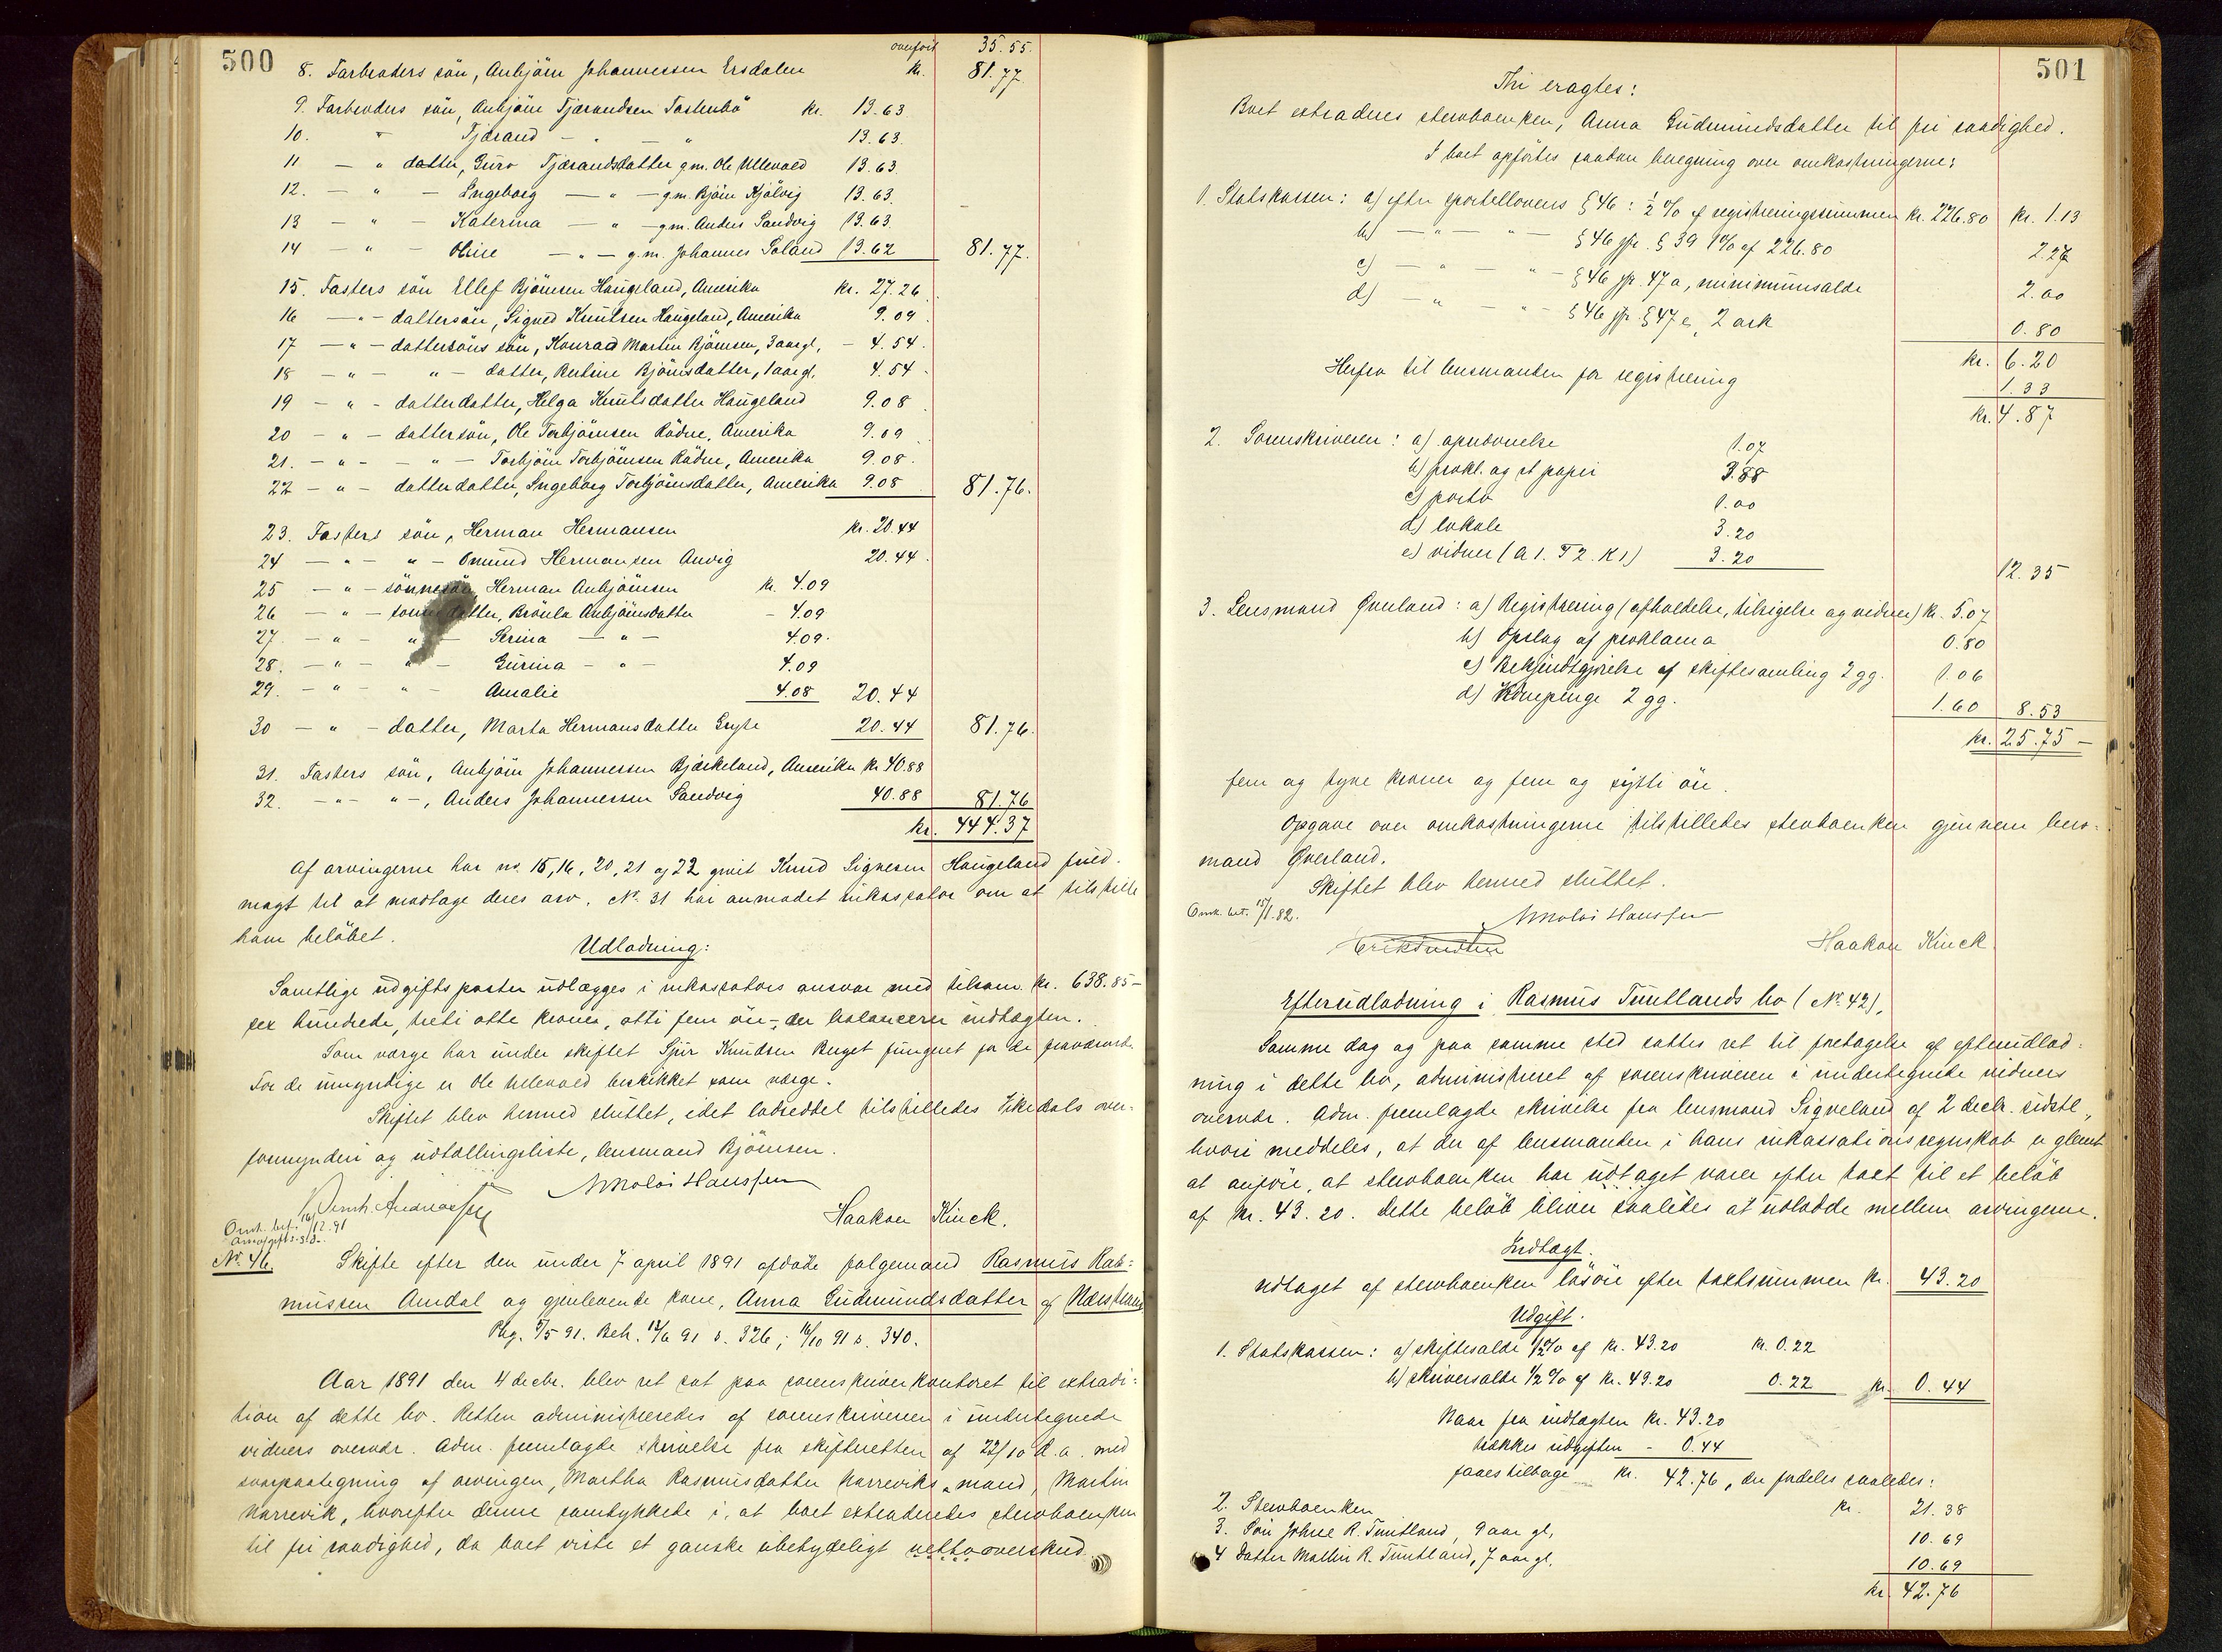 500
overført 35.55.
8. Farbroders søn, Anbjörn Johannessen Ersdalen kr. 81.77
9. Farbroders søn, Anbjörn Tjærandsen Tastenbö kr. 13.63
10. " Tjærand - " - " 13.63.
11 - " datter, Guro Tjærandsdatter gm. Ole Ullevold 13.63.
12. - " - Ingeborg - " - gm. Bjørn Kjölvig 13.63.
13 - " - Katerina - " - gm. Anders Sandvig 13.63
14 - " - Oline - " - g.m. Johannes Soland 13.62 81.77.
15. Fasters søn Ellef Bjömsen Haugeland, Amerika kr. 27.26
16 - " - dattersøn, Signed Knutsen Haugeland, Amerika 9.09.
17 - " - dattersöns søn, Konrad Martin Bjömsen, 3 aar gl, - 4.54.
18 - " - " - datter, Bertine Björnsdatter, 1 aar gl. 4.54
19 - " - datterdatter, Helga Knutsdatter Haugeland 9.08
20 - " - dattersøn, Ole Torbjömsen Rådne, Amerika 9.09
21. - " - - " - Torbjörn Torbjömsen Rådne, Amerika 9.08.
22 - " - datterdatter, Ingeborg Torbjörnsdatter, Amerika 9.08 81.76.
23. Fasters søn, Herman Hermansen kr. 20.44
24 - " - " - Omund Hermansen Anvig 20.44.
25 - " - sønnesøn, Herman Anbjömsen kr. 4.09
26 - " - sønnedatter, Bröula Anbjörnsdatter - 4.09
27. - " - " - Serina - " - 4.09.
28. - " - " - Gurina - " - 4.09
29. - " - " - Amalie 4.08 20.44
30 - " - datter, Marta Hermansdatter Gryte 20.44 81.76.
31. Fasters søn, Anbjörn Johannessen Bjerkeland, Amerika kr 40.88
32. - " - " -, Anders Johannessen Sandvig 40.88 81.76
kr. 444.37
Af arvingerne har no. 15, 16, 20, 21 og 22 givet Knud Signesen Haugeland fuld-
magt til at modtage deres arv. No. 31 har anmodet inkassator om at tilstille
ham beløbet.
Udlodning:
Samtlige udgiftsposter udlægges i inkassators ansvar med tilsam. kr. 638.85 -
sex hundrede, treti otte kroner, otti fem öre -, der balancerer indtægten.
Som værge har under skiftet Sjur Knudsen Ruget fungeret for de fraværende.
For de umyndige er Ole Ullevold beskikket som værge.
Skiftet blev hermed sluttet, idet lodseddel tilstilledes Jikedals over-
formynderi og udtællingsliste, lensmand Bjömsen.
Nikolai Hanssen
Bernh. Andreassen
Haakon Kinck.
Omk. bet. 16/12.91
No. 46. Skifte efter den under 7 april 1891 afdøde folgemand Rasmus Ras-
mussen Amdal og gjenlevende kone, Anna Gudmundsdatter af Nærstrand
Reg. 5/5 91. Beh. 12/6 91 s. 326; 16/10 91 s. 340.
Aar 1891 den 4 decbr. blev ret sat paa sorenskriverkontoret til extradi-
tion af dette bo. Retten administreredes af sorenskriveren i undertegnede
vidners overvær. Adm. fremlagde skrivelse fra skifteretten af 22/10 d.a. med
svarpaategning af arvingen, Martha Rasmusdatter Narreviks mand, Martin
Narrevik, hvorefter denne samtykkede i, at boet extraderedes stervboenken
til fri raadighed, da boet viste et ganske ubetydeligt nettooverskud.
501
Thi eragtes:
Boet extraderes stervboenken, Anna Gudmundsdatter til fri raadighed.
I boet opførtes saadan beregning over omkostningerne:
1. Statskassen: a) efter sportellovens § 46: ½ % af registreringssummen kr. 226.80 kr. 1.13
b) - " - " - § 46 jfr. § 39 1% af 226.80 2.27
c) - " - " - § 46 jfr. 47 a, minimumsalde 2.00
d) - " - " - § 46 jfr. § 47 c, 2 ark 0.80
kr. 6.20
Herfra til lensmanden for registrering 1.33
kr. 4.87
2. Sorenskriveren: a) opnævnelse 1.07
b) prokl. og st papir 3.88
c) porto 1.00
d) lokale 3.20
e) vidner (A 1. T 2. K 1) 3.20 12.35
3. Lensmand Øverland: a) Registrering (afholdelse, tilsigelse og vidner) kr. 5.07
b) Opslag af proklama 0.80
c) Bekjendtgjørelse af skiftesamling 2 gg. 1.06
d) Körepenge 2 gg. 1.60 8.53
kr. 25.75 -
fem og tyve kroner og fem og sytti öre.
Opgave over omkostningerne tilstilledes stervboenken gjennem lens-
mand Øverland.
Skiftet blev hermed sluttet.
Omk. bet. 15/1.82.
Nikolai Hanssen
Haakon Kinck
Efterudlodning i Rasmus Tuntlands bo (No. 42),
Samme dag og paa samme sted sattes ret til foretagelse af efterudlod-
ning i dette bo, administreret af sorenskriveren i undertegnede vidners
overvær. Adm. fremlagde skrivelse fra lensmand Sigveland af 2 decbr. sidstl.,
hvori meddeles, at der af lensmanden i hans inkassationsregnskab er glemt
at anføre, at stervboenken har udtaget varer efter taxt til et beløb
af kr. 43.20. Dette beløb bliver saaledes at udlodde mellem arvingerne.
Indtægt.
Udtaget af stervboenken løsøre efter taxtsummen kr. 43.20
Udgift.
1. Statskassen: a) skiftesalde ½ % af kr. 43.20 kr. 0.22
b) skriversalde ½ % af kr. 43.20 0.22 kr. 0.44
Naar fra indtægten kr. 43.20
trækkes udgiften - 0.44
faaes tilbage kr. 42.76, der fordeles saaledes:
2. Stervboenken kr. 21.38
3. Søn Johne R. Tuntland, 9 aar gl, 10.69
4 Datter Mallin R. Tuntland, 7 aar gl. 10.69
kr 42.76